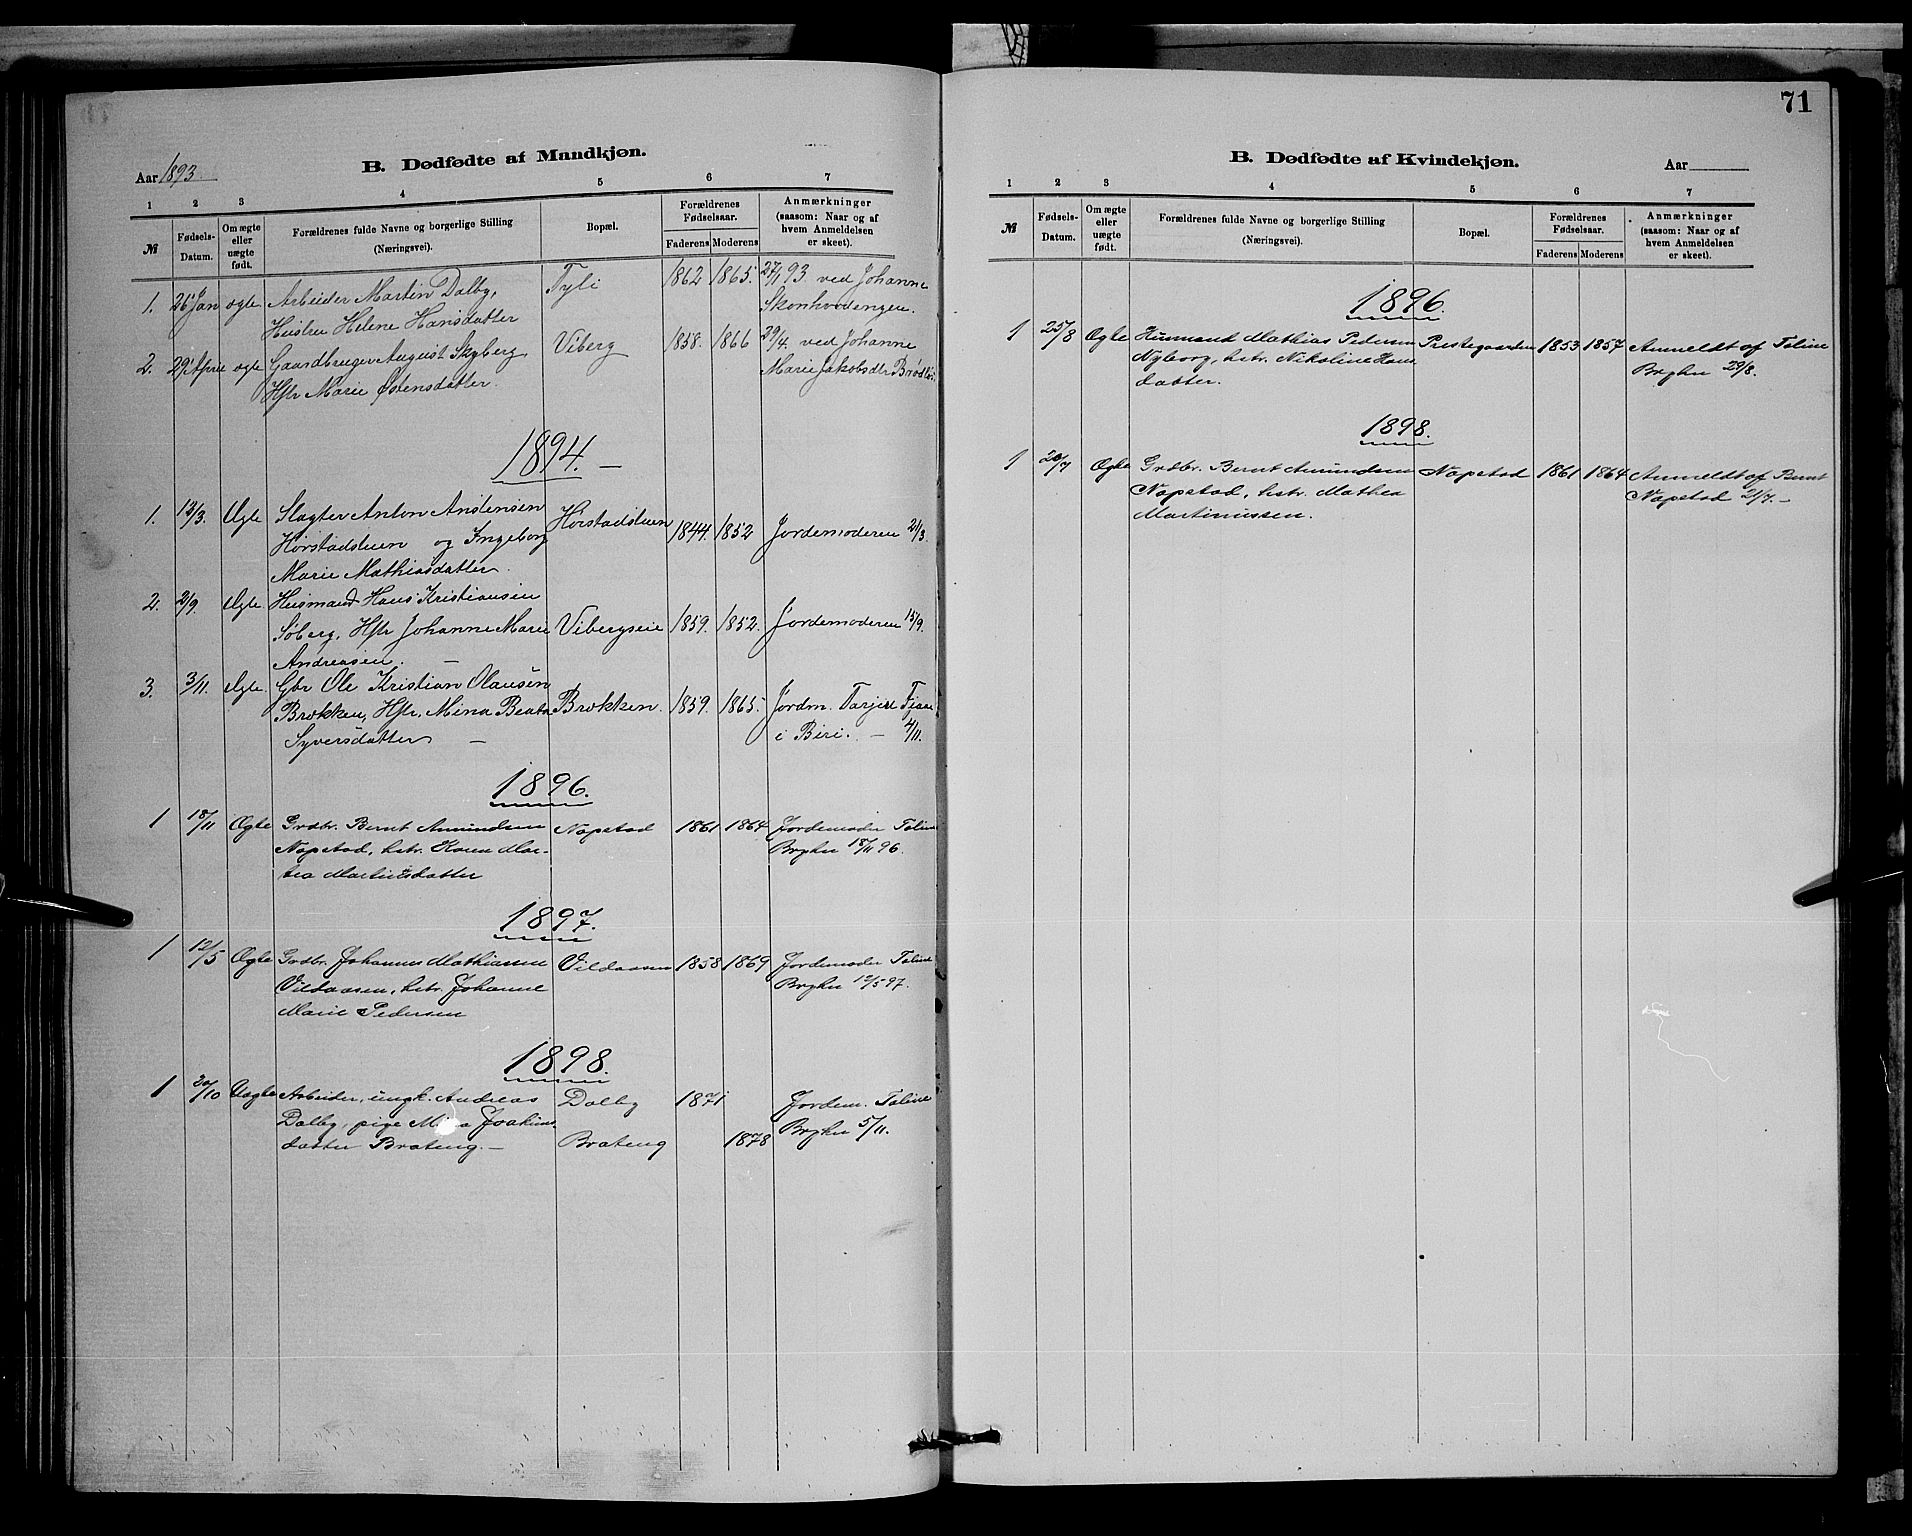 B. Dødfødte af Mandkjøn.
Aar 1893.
1 2 3 4 5 6 7
№ Fødsels-Datum. Om ægte eller uægte født. Forældrenes fulde Navne og borgerlige Stilling (Næringsvei). Bopæl. Forældrenes Fødselsaar. Faderens Moderens Anmærkninger (saasom: Naar og af hvem Anmeldelsen er skeet).
1. 26 Jan ægte Arbeider Martin Dalby, Tyli 1862 1865. 27/1 93 ved Johanne
Hustru Helene Hansdatter Skonhovdengen.
2. 29 April ægte Gaardbruger August Skyberg Viberg 1858. 1866 29/4. ved Johanne
Hstr Marie Østensdatter. Marie Jakobsdtr
1894. –
1. 13/3. Ægte Slagter Anton Anstensen Hørstadstuen 1844. 1852 Jordemoderen 21/3.
Hørstadstuen og Ingeborg
Marie Mathiasdatter.
2. 2/9. Ægte Husmand Hans Kristiansen
Søberg, Hstr Johanne Marie Vibergseie 1859. 1852. Jordemoderen 15/9.
Andreasen. –
3. 3/11. Ægte. Gbr Ole Kristian Olausen
Brokken, Hstr. Mina Beata Brokken. 1859. 1865. Jordm. Tarjei
Syversdatter – i Biri. – 4/11.
1896.
1 18/11 Ægte Grdbr. Bernt Amundsen Nøpstad 1861 1864 Jordemoder Taline
Nøpstad, hstr. Karen Mar- Bryhn 18/11 96.
tea Martinusdatter
1897.
1 12/5 Ægte Grdbr. Johannes Mathiassen Vildaasen 1858 1869 Jordemoder Taline
Vildaasen, hstr. Johanne Bryhn 12/5 97.
Marie Pedersen
1898.
1 30/10 Uægte Arbeider, ungk. Andreas Dalby 1871 Jordem. Taline
Dalby, pige Joakims- Bryhn 5/11.
datter Brateng. – Brateng 1878
71
B. Dødfødte af Kvindekjøn.
Aar
1 2 3 4 5 6 7
№ Fødsels-Datum. Om ægte eller uægte født. Forældrenes fulde Navne og borgerlige Stilling (Næringsvei). Bopæl. Forældrenes Fødselsaar. Faderens Moderens Anmærkninger (saasom: Naar og af hvem Anmeldelsen er skeet).
1896.
1 25/8 Ægte Husmand Mathias Pedersen Prestegaarden 1853 1857 Anmeldt af Taline
Nyborg, hstr. Nikoline Hans Bryhn 29/8.
datter.
1898.
1 20/7 Ægte Grdbr. Bernt Amundsen Nøpstad 1861 1864 Anmeldt af Bernt
Nøpstad, hstr. Mathea Nøpstad 21/7. –
Martinussen.